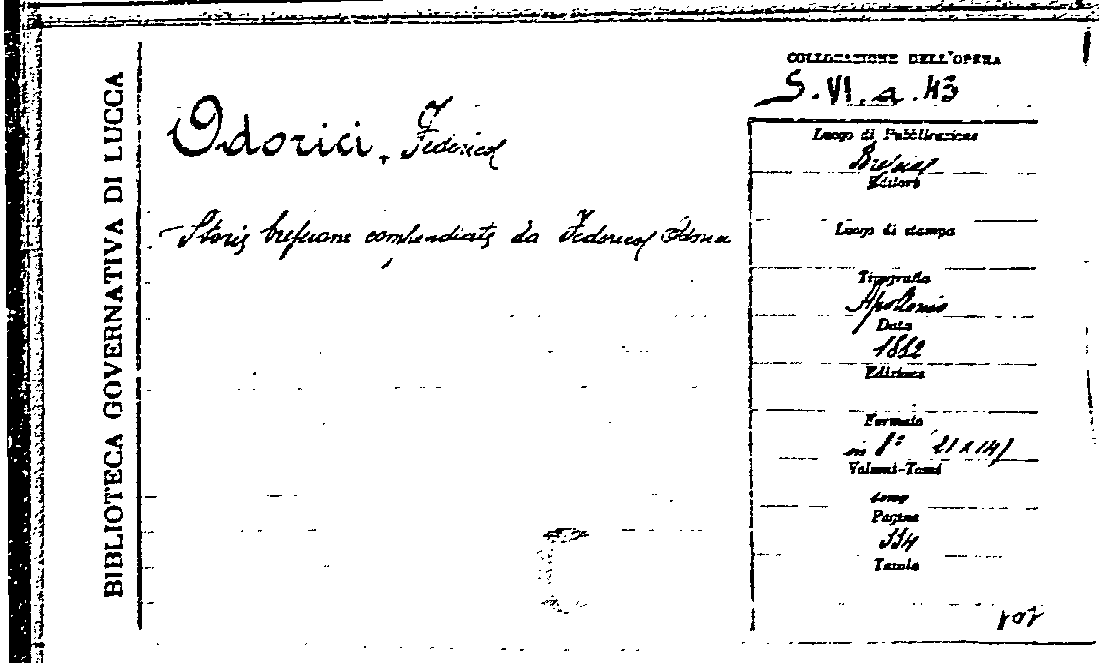 BIBLIOTECA GOVERNATIVA DI LUCCA
Odorici, Federico
Storie bresciane compendiate da Federico Odorici
COLLOCAZIONE DELL'OPERA
S. VI. a. 43
Luogo di Pubblicazione
Brescia
Editore
Luogo di stampa
Tipografia
Apollonio
Data
Edizione
Formato
in 8° 21 x 14
Volumi-Tomi
uno
Pagine
334
Tavole